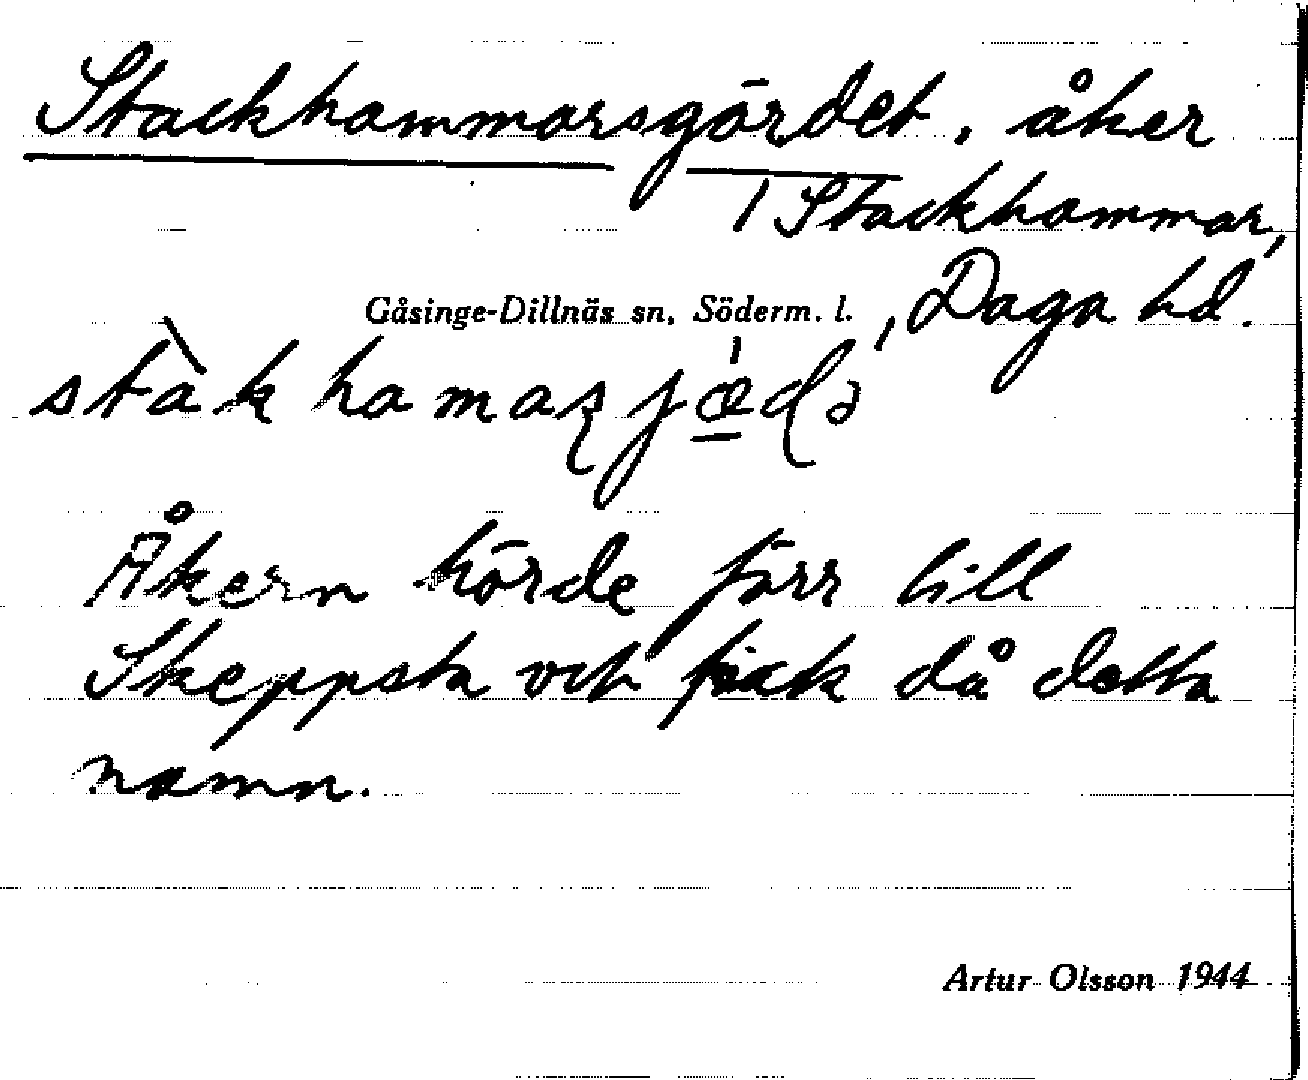 Stackhammarsgärdet, åker
i Stackhammar,
Gåsinge-Dillnäs sn, Söderm. l., Daga hd.
Åkern hörde förr till
Skeppsta och fick då detta
namn.
Artur Olsson 1944